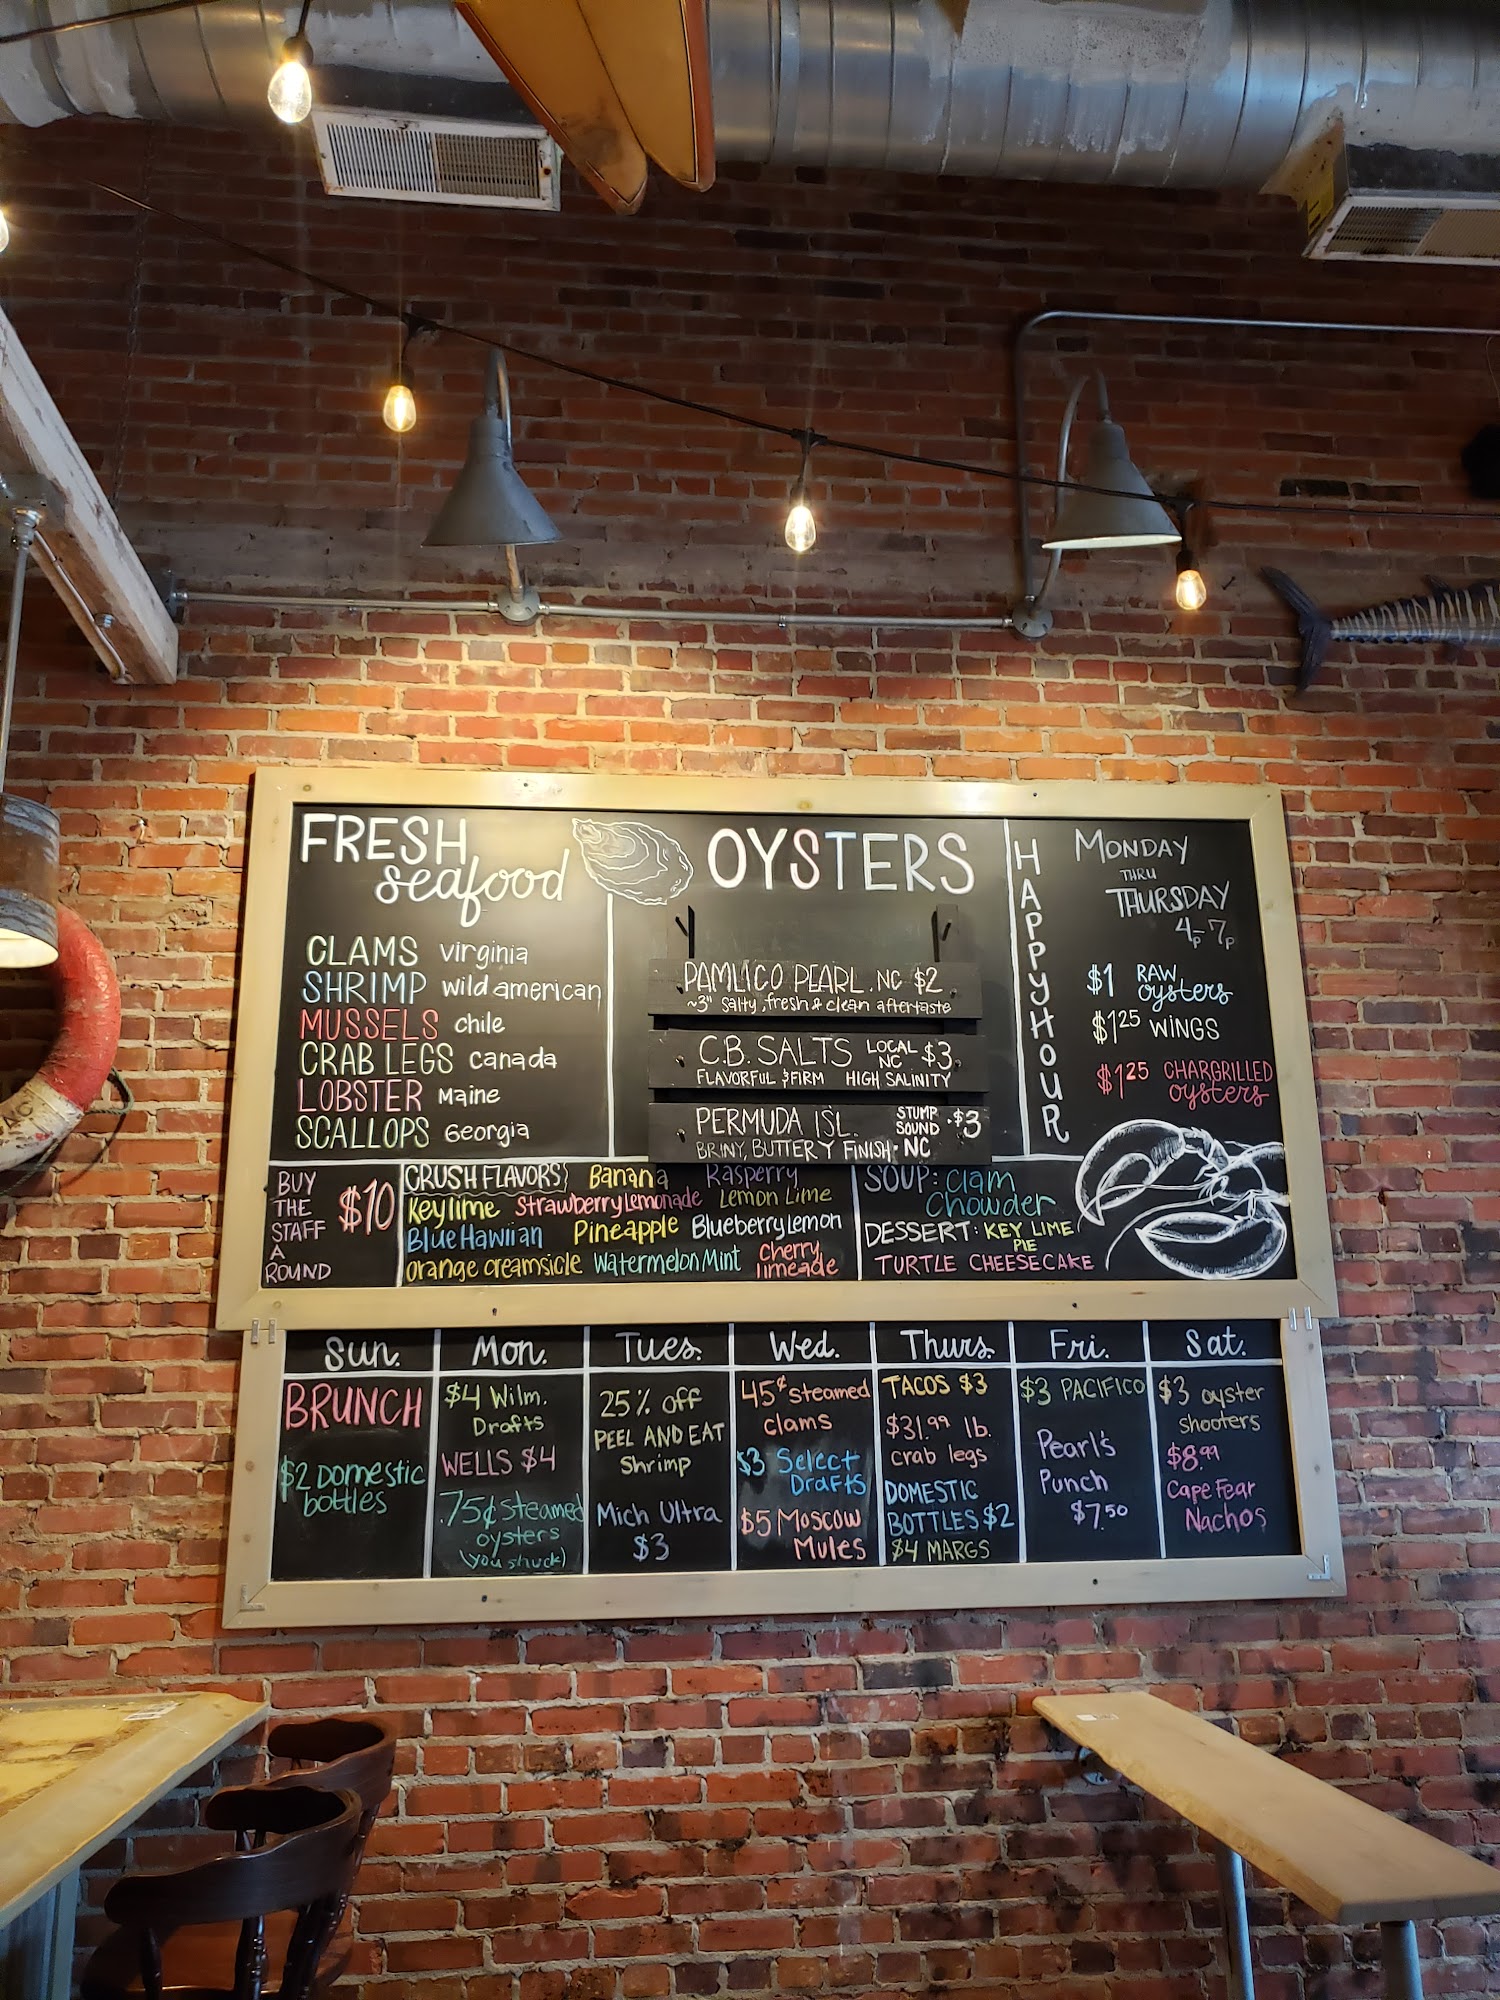 FRESH
seafood
CLAMS virginia
SHRIMP wild american
MUSSELS chile
CRAB LEGS canada
LOBSTER Maine
SCALLOPS Georgia
OYSTERS
PAMLICO PEARL NC $2
~3" salty, fresh & clean aftertaste
C.B. SALTS LOCAL NC $3
FLAVORFUL & FIRM HIGH SALINITY
PERMUDA ISL. STUMP SOUND $3
BRINY, BUTTERY FINISH NC
HAPPY HOUR
MONDAY
THRU
THURSDAY
4p-7p
$1 RAW oysters
$1.25 WINGS
$1.25 CHARGRILLED oysters
BUY
THE
STAFF
A
ROUND
$10
CRUSH FLAVORS Banana Rasperry
Keylime Strawberry Lemonade Lemon Lime
Blue Hawiian Pineapple Blueberry Lemon
orange creamsicle Watermelon Mint cherry limeade
SOUP: Clam
Chowder
DESSERT: KEY LIME
PIE
TURTLE CHEESECAKE
Sun.
BRUNCH
$2 Domestic
bottles
Mon.
$4 Wilm.
Drafts
WELLS $4
.75¢ steamed
oysters
(you shuck)
Tues.
25% off
PEEL AND EAT
Shrimp
Mich Ultra
$3
Wed.
45¢ steamed
clams
$3 Select
Drafts
$5 Moscow
Mules
Thurs.
TACOS $3
$31.99 lb.
crab legs
DOMESTIC
BOTTLES $2
$4 MARGS
Fri.
$3 PACIFICO
Pearl's
Punch
$7.50
Sat.
$3 oyster
shooters
$8.99
Cape Fear
Nachos